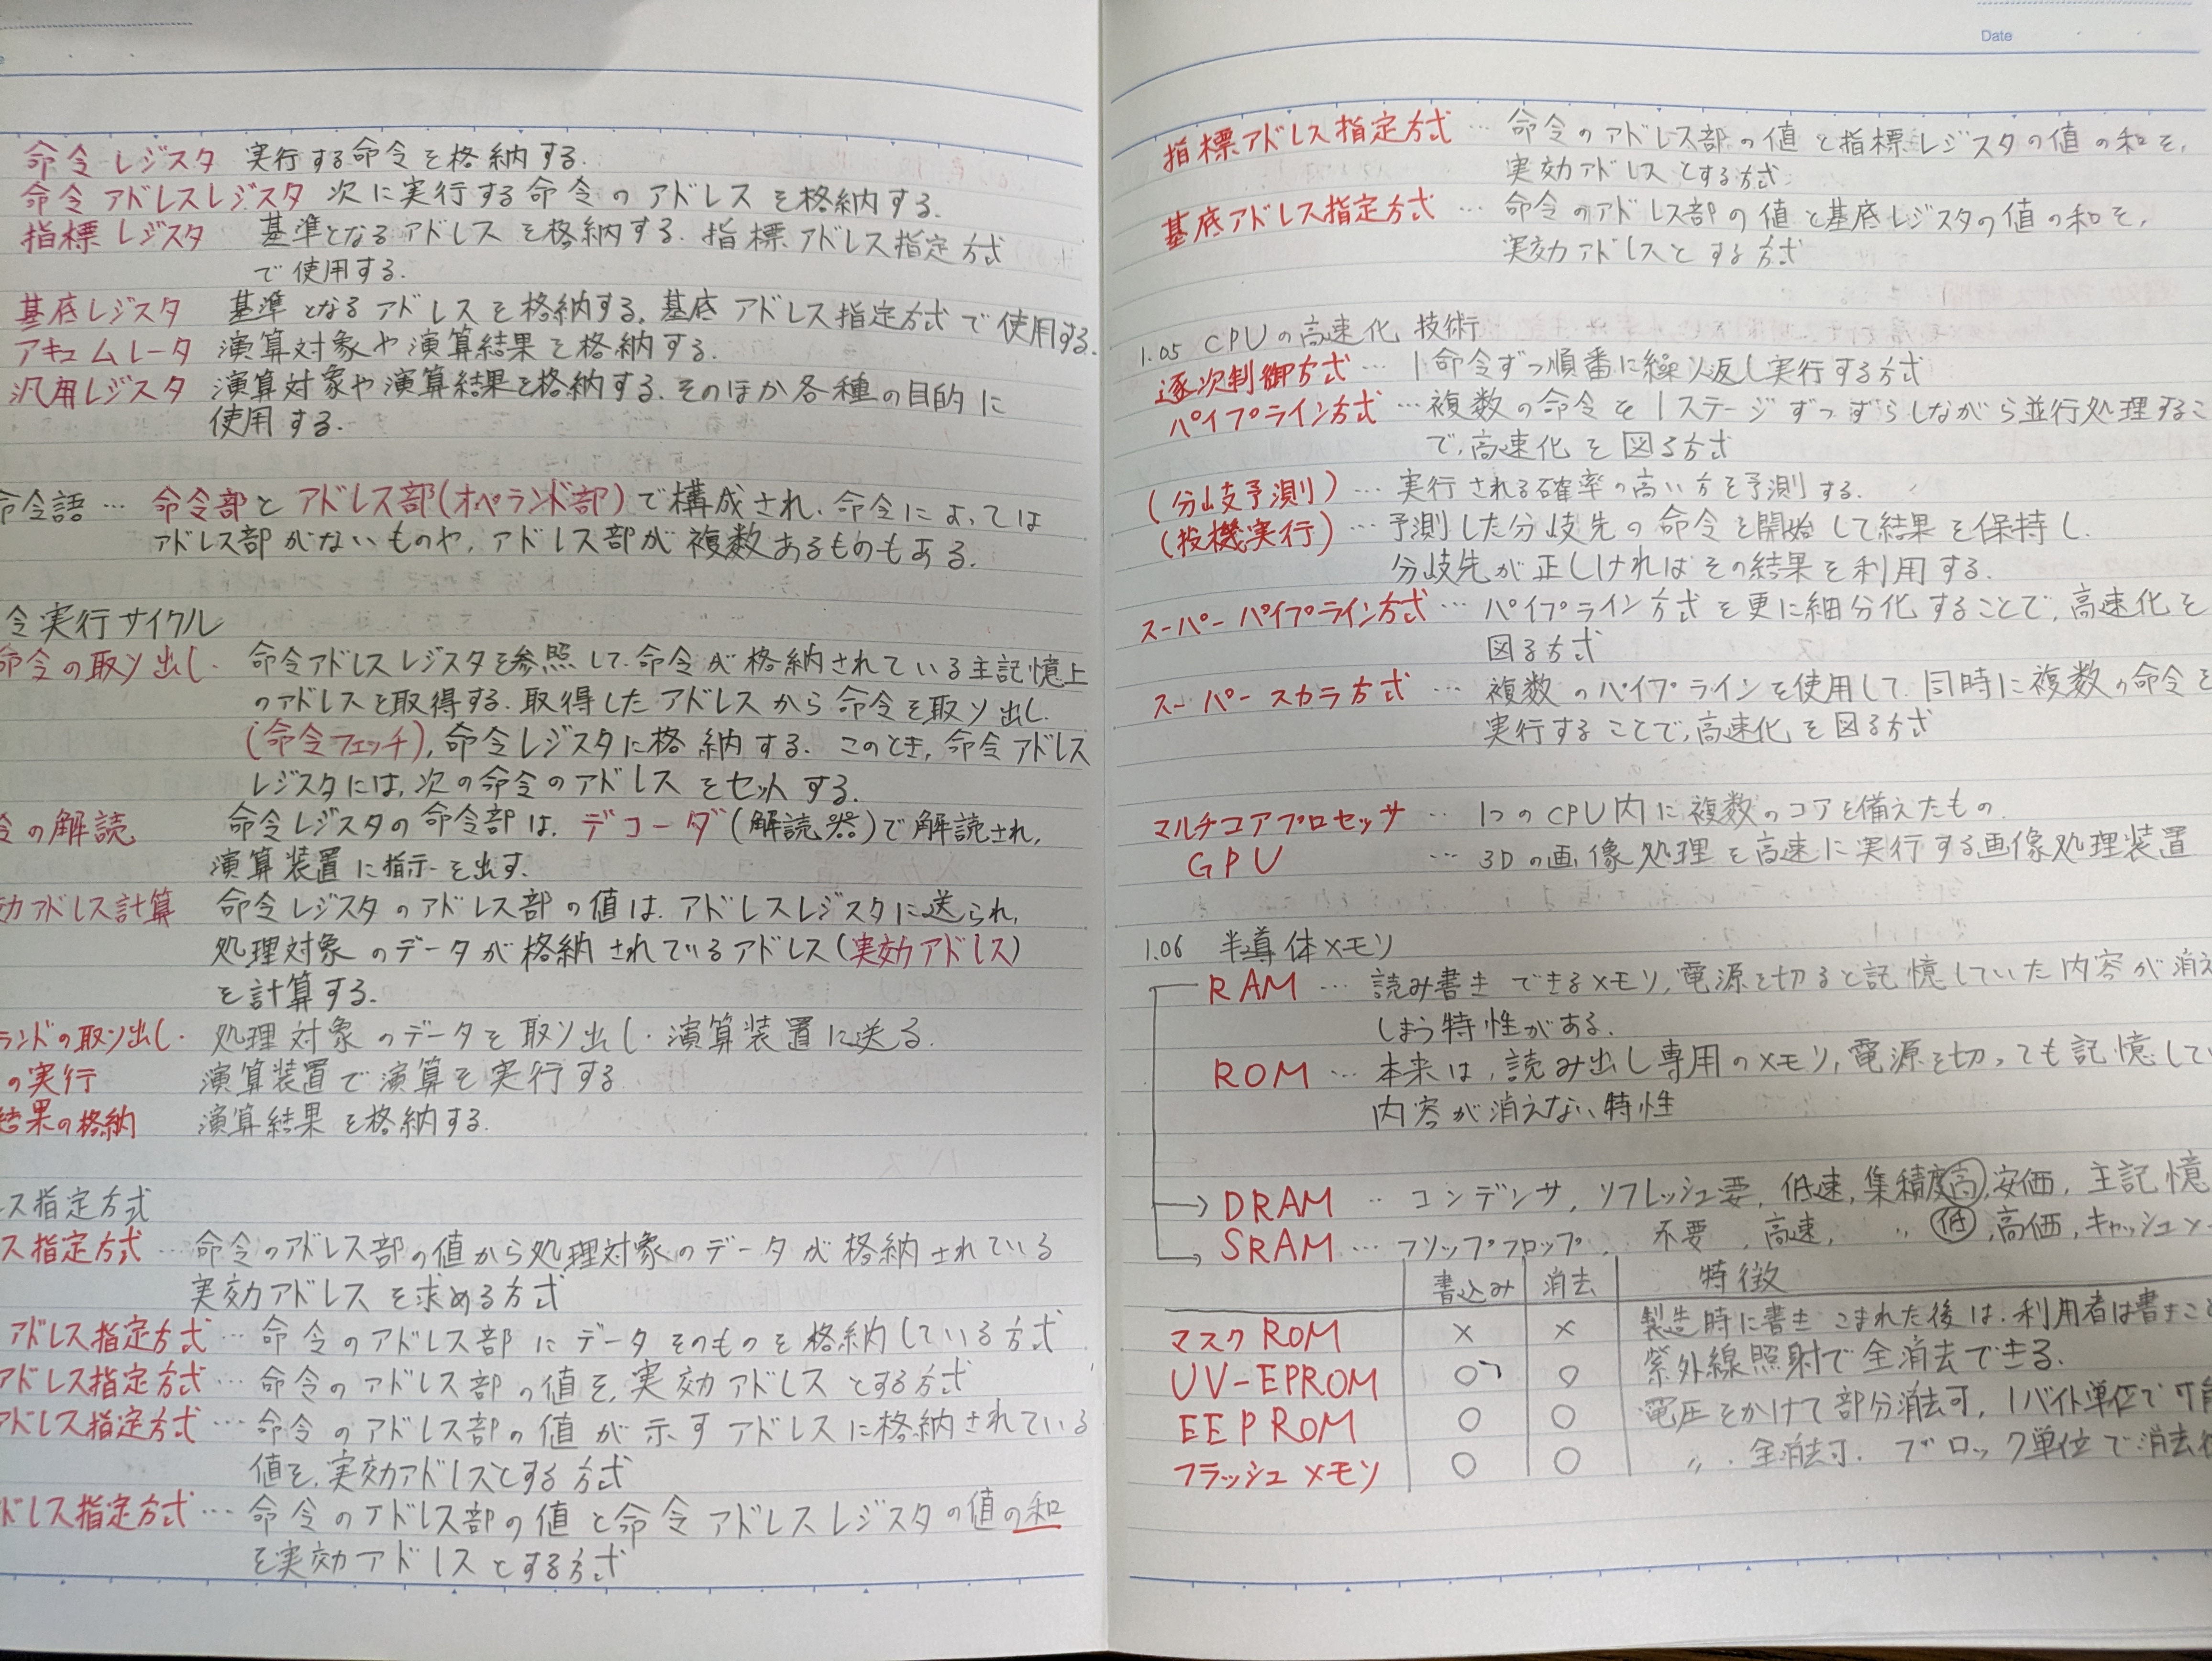 命令レジスタ 実行する命令を格納する.
命令アドレスレジスタ 次に実行する命令のアドレスを格納する.
指標レジスタ 基準となるアドレスを格納する. 指標アドレス指定方式
で使用する.
基底レジスタ 基準となるアドレスを格納する. 基底アドレス指定方式で使用する.
アキュムレータ 演算対象や演算結果を格納する.
汎用レジスタ 演算対象や演算結果を格納する. そのほか各種の目的に
使用する.
命令語… 命令部とアドレス部(オペランド部)で構成され、命令によっては
アドレス部がないものや, アドレス部が複数あるものもある.
令実行サイクル
命令の取り出し. 命令アドレスレジスタを参照して、命令が格納されている主記憶上
のアドレスを取得する. 取得したアドレスから命令を取り出し
(命令フェッチ), 命令レジスタに格納する. このとき, 命令アドレス
レジスタには, 次の命令のアドレスをセットする.
令の解読 命令レジスタの命令部は, デコーダ(解読器)で解読され,
演算装置に指示を出す.
効アドレス計算 命令レジスタのアドレス部の値は, アドレスレジスタに送られ,
処理対象のデータが格納されているアドレス(実効アドレス)
を計算する.
ランドの取り出し. 処理対象のデータを取り出し. 演算装置に送る.
の実行 演算装置で演算を実行する
結果の格納 演算結果を格納する.
ス指定方式
ス指定方式… 命令のアドレス部の値から処理対象のデータが格納されている
実効アドレスを求める方式
アドレス指定方式… 命令のアドレス部にデータそのものを格納している方式
アドレス指定方式… 命令のアドレス部の値を, 実効アドレスとする方式
アドレス指定方式… 命令のアドレス部の値が示すアドレスに格納されている
値を, 実効アドレスとする方式
ドレス指定方式… 命令のアドレス部の値と命令アドレスレジスタの値の和
を実効アドレスとする方式
Date
指標アドレス指定方式… 命令のアドレス部の値と指標レジスタの値の和を,
実効アドレスとする方式
基底アドレス指定方式… 命令のアドレス部の値と基底レジスタの値の和を,
実効アドレスとする方式
1.05 CPUの高速化技術
逐次制御方式… 1命令ずつ順番に繰り返し実行する方式
パイプライン方式… 複数の命令を1ステージずつずらしながら並行処理するこ
で, 高速化を図る方式
(分岐予測)… 実行される確率の高い方を予測する.
(投機実行)… 予測した分岐先の命令を開始して結果を保持し.
分岐先が正しければその結果を利用する.
スーパーパイプライン方式… パイプライン方式を更に細分化することで, 高速化を
図る方式
スーパースカラ方式… 複数のパイプラインを使用して, 同時に複数の命令を
実行することで, 高速化を図る方式
マルチコアプロセッサ… 1つのCPU内に複数のコアを備えたもの.
GPU… 3Dの画像処理を高速に実行する画像処理装置
1.06 半導体メモリ
RAM… 読み書きできるメモリ, 電源を切ると記憶していた内容が消え
しまう特性がある.
ROM… 本来は, 読み出し専用のメモリ, 電源を切っても記憶してい
内容が消えない特性
DRAM… コンデンサ, リフレッシュ要, 低速, 集積度高, 安価, 主記憶
SRAM… フリップフロップ, 不要, 高速, 〃 低, 高価, キャッシュメ
書込み 消去 特徴
マスクROM × × 製造時に書きこまれた後は, 利用者は書きこ
UV-EPROM ○ ○ 紫外線照射で全消去できる.
EEPROM ○ ○ 電圧をかけて部分消去可, 1バイト単位で可能
フラッシュメモリ ○ ○ 〃. 全消去可. ブロック単位で消去